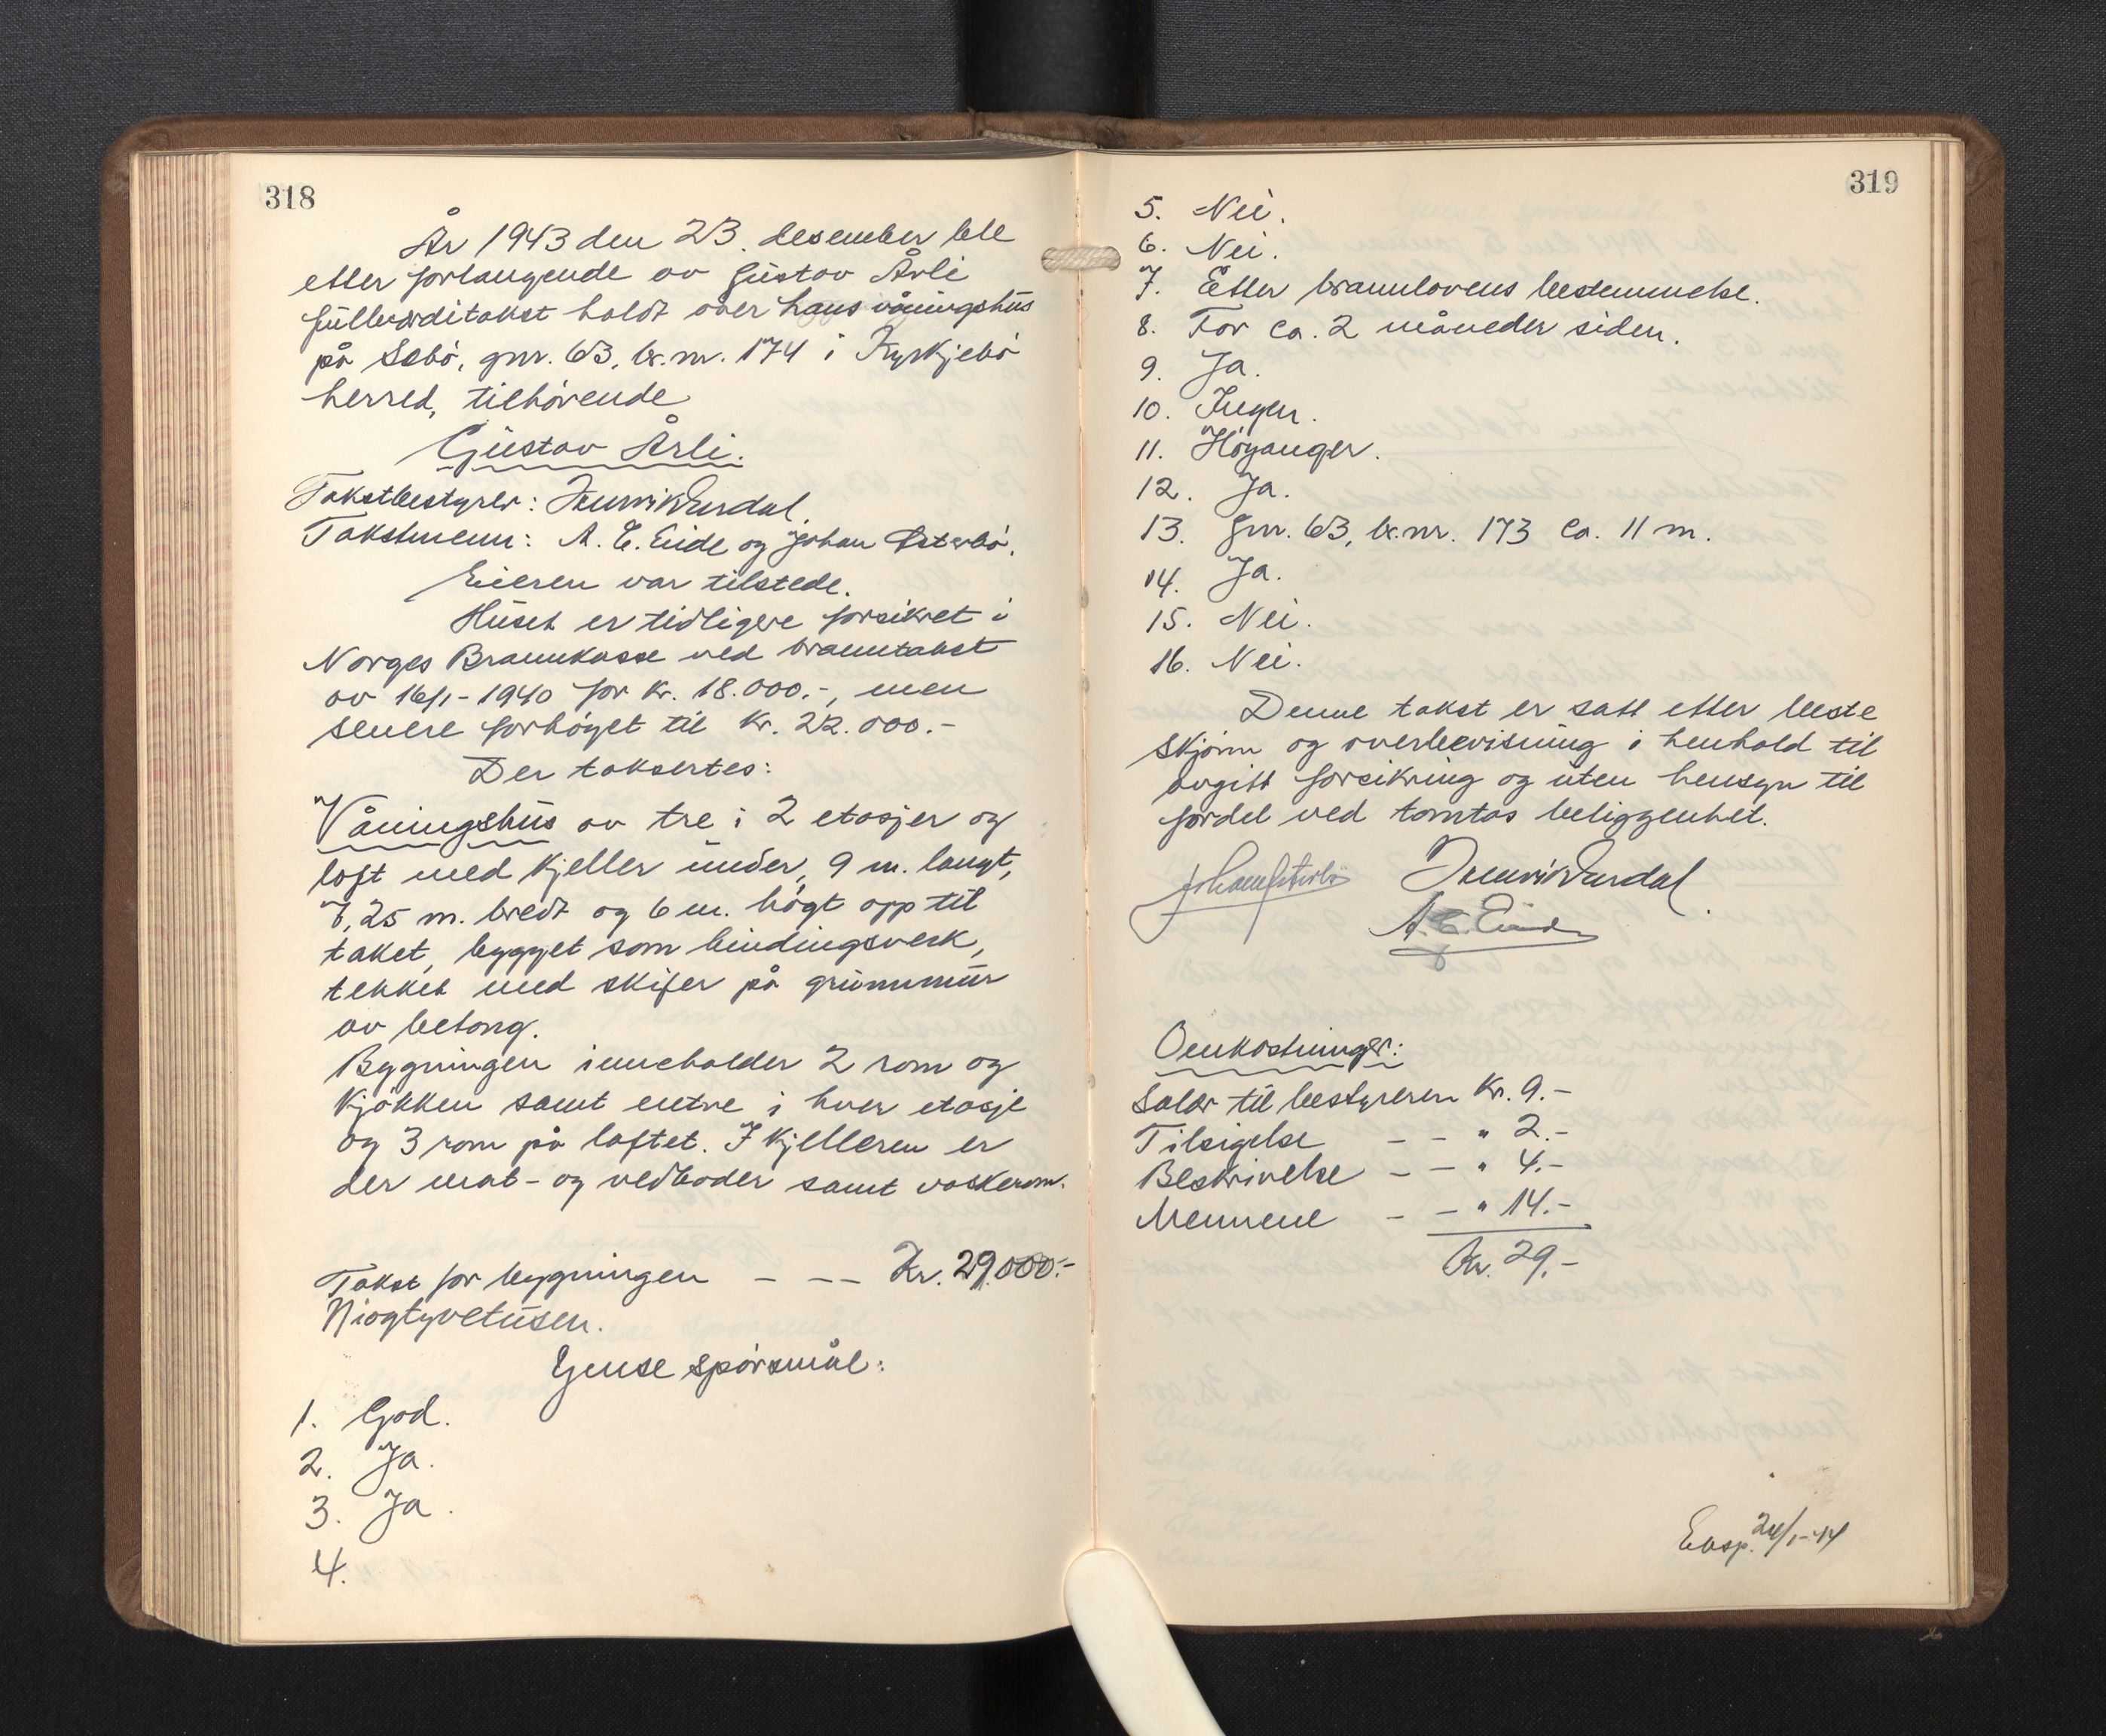 318
År 1943 den 23. desember ble
etter forlangende av Gustav Årli
fullverditakst holdt over hans våningshus
på Sæbö, gnr. 63, br.nr. 174 i Kyrkjebö
herred, tilhörende
Gustav Årli.
Takstbestyrer: Henrik Erdal.
Takstmenn: A. E. Eide og Johan Österbö.
Eieren var tilstede.
Huset er tidligere forsikret i
Norges Brannkasse ved branntakst
av 16/1-1940 for kr. 18.000.-, men
senere forhöyet til kr. 22.000.-
Der taksertes:
Våningshus av tre i 2 etasjer og
loft med kjeller under, 9 m. langt,
7,25 m. bredt og 6 m. högt opp til
taket, bygget som bindingsverk,
tekket med skifer på grunnmur
av betong.
Bygningen inneholder 2 rom og
kjökken samt entre i hver etasje
og 3 rom på loftet. I kjelleren er
der mat- og vedboder samt vaskerom.
Takst for bygningen - -- Kr. 29.000.-
Niogtyvetusen.
Ymse spörsmål:
1. God.
2. Ja.
3. Ja.
4.
319
5. Nei.
6. Nei.
7. Etter brannlovens bestemmelse.
8. For ca. 2 måneder siden.
9. Ja.
10. Ingen.
11. Höyanger.
12. Ja.
13. gnr. 63, br.nr. 173 ca. 11 m.
14. Ja.
15. Nei.
16. Nei.
Denne takst er satt etter beste
skjönn og overbevisning i henhold til
avgitt forsikring og uten hensyn til
fordel ved tomtas beliggenhet.
Johan Österbö Henrik Erdal.
A. E. Eide
Omkostninger:
Salær til bestyreren Kr. 9.-
Tilsigelse - - " 2.-
Beskrivelse - - " 4.-
Mennene - - " 14.-
Kr. 29.-
Eksp. 24/1-44